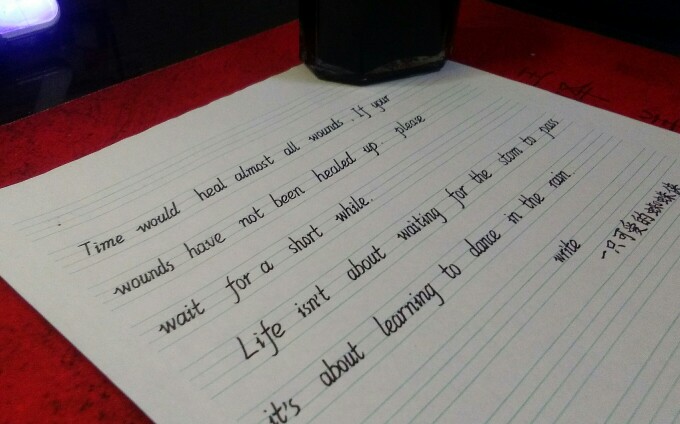 Time would heal almost all wounds. If your
wounds have not been healed up. please
wait for a short while.
Life isn't about waiting for the stom to pass
it's about learning to dance in the rain.
write
一只可爱的